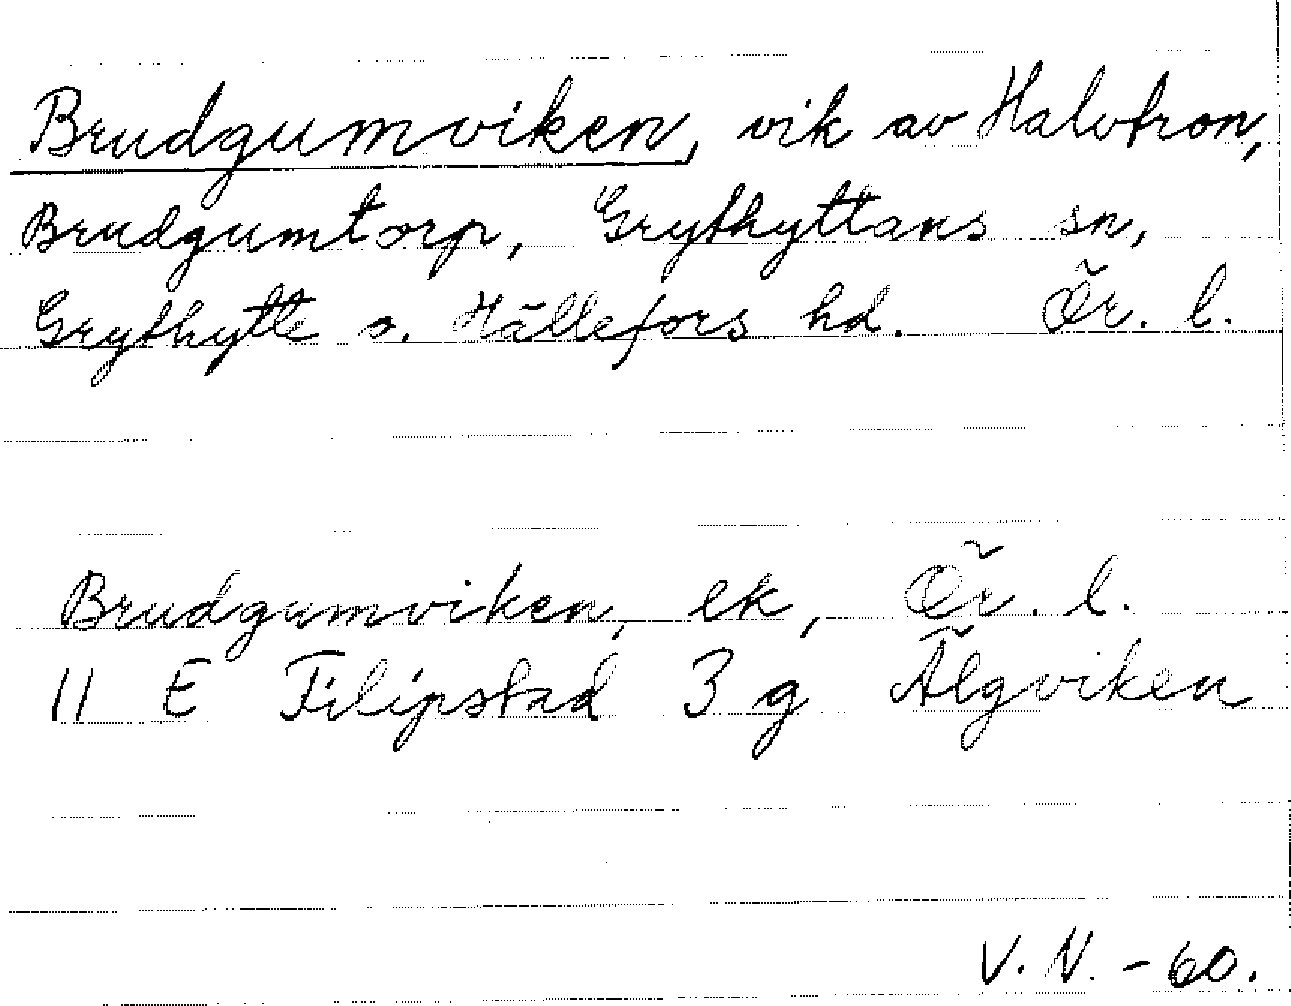 Brudgumviken, vik av Halvtron,
Brudgumtorp, Grythyttans sn,
Grythytte o. Hällefors hd. Ör. l.
Brudgumviken, ek, Ör. l.
11 E Filipstad 3 g Älgviken
V. N. - 60.